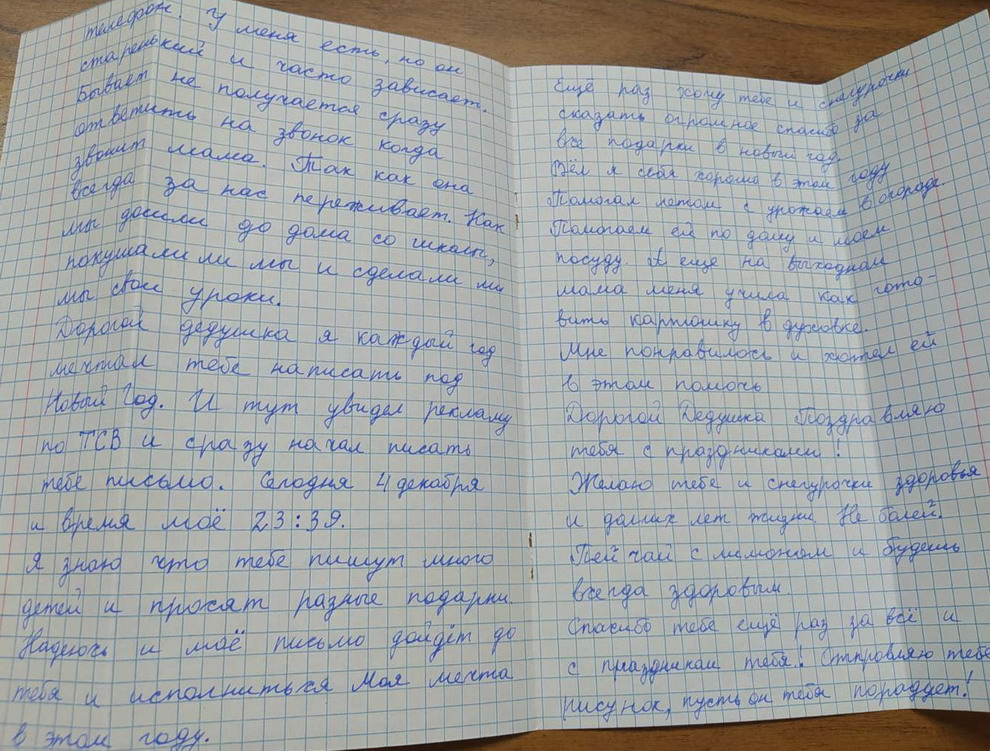 телефон. У меня есть, но он
старенький и часто зависает.
Бывает не получается сразу
ответить на звонок когда
звонит мама. Так как она
всегда за нас переживает. Как
мы дошли до дома со школы,
покушали ли мы и сделали ли
мы свои уроки.
Дорогой дедушка я каждый год
мечтал тебе написать под
Новый Год. И тут увидел рекламу
по ТСВ и сразу начал писать
тебе письмо. Сегодня 4 декабря
и время моё 23:39.
Я знаю что тебе пишут много
детей и просят разные подарки.
Надеюсь и моё письмо дойдёт до
тебя и исполниться моя мечта
в этом году.
Ещё раз хочу тебе и снегурочки
сказать огромное спасибо за
все подарки в новый год.
Вёл я себя хорошо в этом году
Помогал летом с урожаем в огороде.
Помогаем ей по дому и моем
посуду. А еще на выходном
мама меня учила как гото-
вить картошку в духовке.
Мне понравилось и хотел ей
в этом помочь
Дорогой Дедушка Поздравляю
тебя с праздниками!
Желаю тебе и снегурочки здоровья
и долгих лет жизни. Не болей.
Пей чай с лимоном и будешь
всегда здоровым.
Спасибо тебе ещё раз за всё и
с праздникам тебя! Отправляю тебе
рисунок, пусть он тебя порадует!